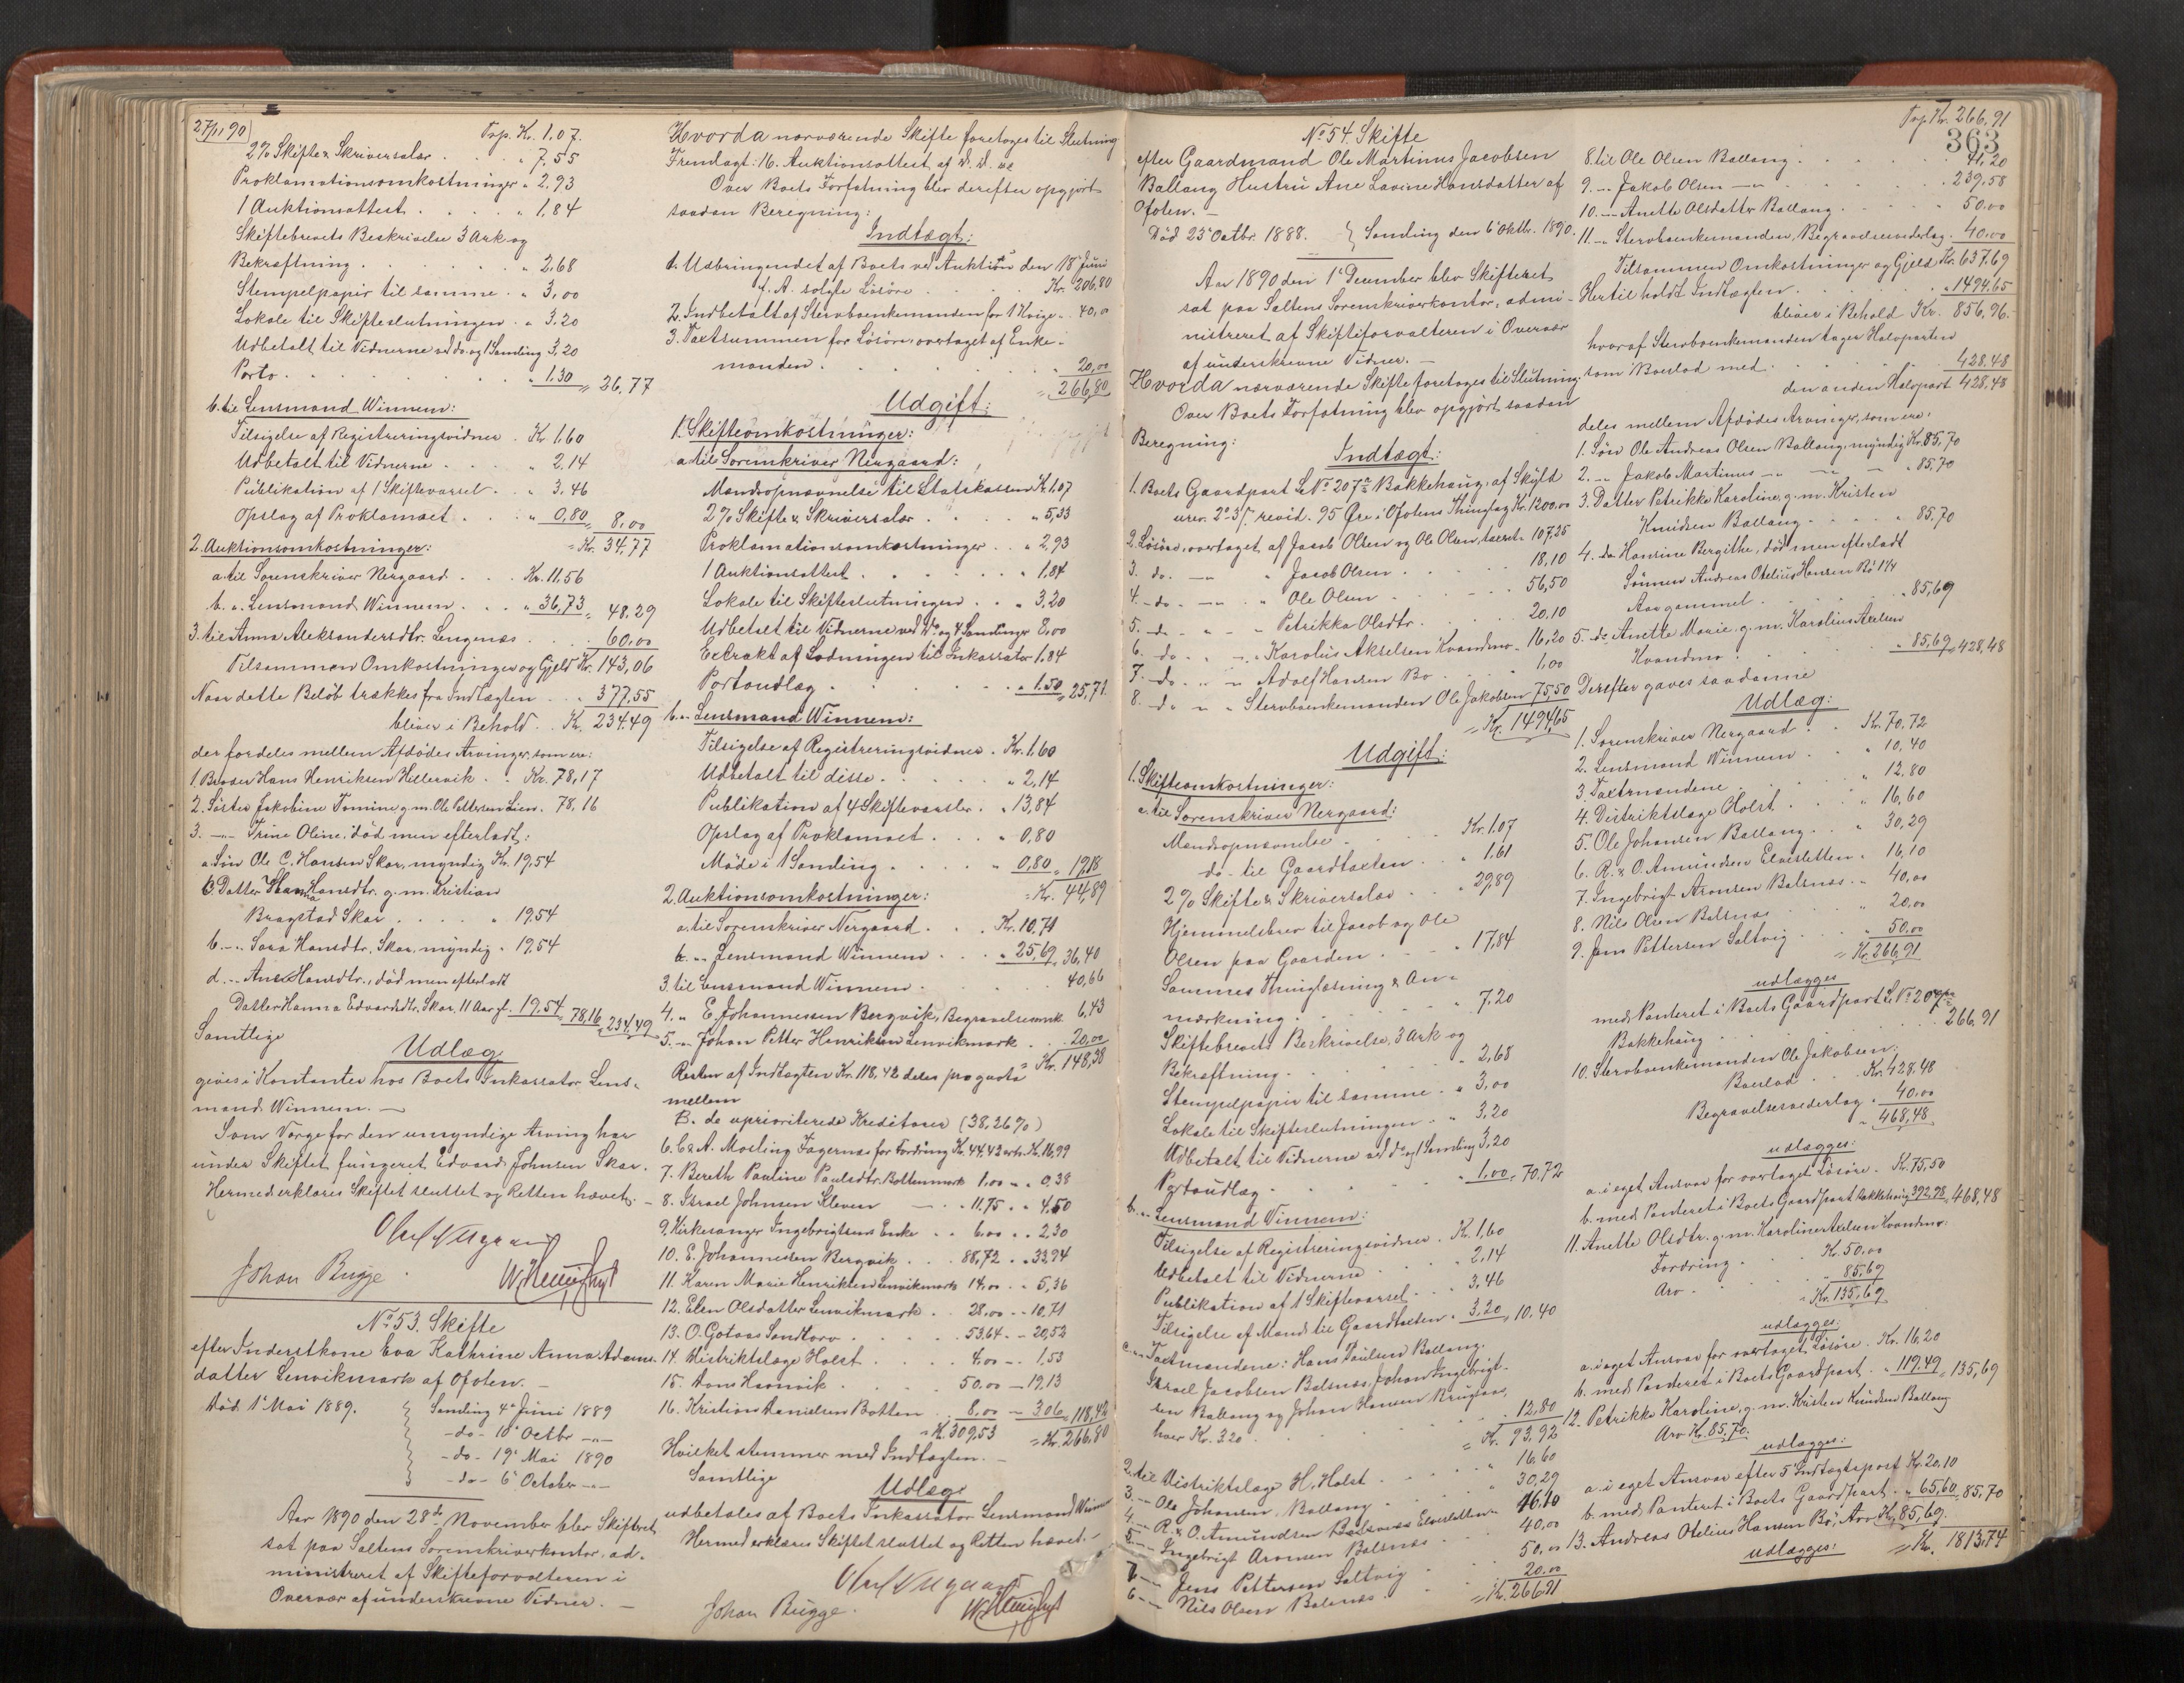 27/11 90
Trp. Kr. 1.07.
2% Skifte & Skriversalær . . . " 7,55
Proklamationsomkostninger " 2,93
1 Auktionsattest . . . . " 1,84
Skiftebrevets Beskrivelse 3 Ark og
Bekræftning . . . . " 2,68
Stempelpapir til samme . " 3,00
Lokale til Skifteslutningen . " 3.20
Udbetalt til Vidnerne ved do. og 1 Samling 3,20
Porto . . . . " 1.30 = 26,77
b. til Lensmand Winnem:
Tilsigelse af Registreringsvidner . Kr. 1.60
Udbetalt til Vidnerne . . . " 2.14
Publikation af 1 Skiftevarsel . " 3.46
Opslag af Proklamaet . . " 0,80 = 8,00
= Kr. 34,77
2. Auktionsomkostninger:
a. til Sorenskriver Nergaard . . . Kr. 11.56
b. " Lensmand Winnem . . . " 36,73 = 48,29
3. til Anna Aleksandersdtr. Lengenes . . 60,00
Tilsammen Omkostninger og Gjeld Kr. 143,06
Naar dette Beløb trækkes fra Indtægten . . " 377,55
bliver i Behold . . Kr. 234.49
der fordeles mellem Afdødes Arvinger, som ere:
1. Broder Hans Henriksen Hellervik . . Kr. 78,17
2. Søster Jakobine Tomine g. m. Ole Pettersen Lien . 78,16
3. —"— Trine Oline, død men efterladt:
a. Søn Ole C. Hansen Skar, myndig Kr. 19,54
b. Datter Hanna Hansdtr. g. m. Kristian
Bragstad Skar . . . . " 19,54
b. —"— Sara Hansdtr. Skar, myndig " 19,54
d. —"— Ane Hansdtr., død men efterladt
Datter Hanna Edvardsdtr. Skar, 11 Aar gl. 19,54 = 78,16 = 234,49
Samtlige
Udlæg
gives i Kontanter hos Boets Inkassator Lens-
mand Winnem. —
Som Værge for den umyndige Arving har
under Skiftet fungeret Edvard Johnsen Skar.
Hermed erklæres Skiftet sluttet og Retten hævet. —
Johan Bugge.
No 53. Skifte
efter Inderstkone Eva Kathrine Anna Adams-
datter Lenvikmark af Ofoten. —
Død 1' Mai 1889.
Samling 4' Juni 1889
- do - 10' Octbr —"—
- do - 19' Mai 1890
- do - 6' October —"—
Aar 1890 den 28de November blev Skifteret
sat paa Saltens Sorenskriverkontor, ad-
ministreret af Skifteforvalteren i
Overvær af underskrevne Vidner. —
Hvorda nærværende Skifte foretoges til Slutning
Fremlagt: 16. Auktionsattest af D. D.
Over Boets Forfatning blev derefter opgjort
saadan Beregning:
Indtægt:
1. Udbringendet af Boets ved Auktion den 18' Juni
f. A. solgte Løsøre . . . Kr. 206,80
2. Indbetalt af Stervboenkemanden for 1 Kvige . 40,00
3. Taxtsummen for Løsøre, overtaget af Enke-
manden . . . . " 20,00
= 266,80
Udgift:
1. Skifteomkostninger:
a. til Sorenskriver Nergaard:
Mandsopnævnelse til Statskassen Kr. 1,07
2% Skifte & Skriversalær . . . " 5,33
Proklamationsomkostninger . . " 2,93
1 Auktionsattest . . . . " 1,84
Lokale til Skifteslutningen . . " 3,20
Udbetalt til Vidnerne ved Do. og 4 Samlinger 8,00
Extrakt af Lodningen til Inkassator 1.84
Portoudlæg . . . . " 1.50 = 25,71
b. " Lensmand Winnem:
Tilsigelse af Registreringsvidner . Kr. 1.60
Udbetalt til disse . . . . " 2,14
Publikation af 4 Skiftevarsler . " 13,84
Opslag af Proklamaet . . . " 0,80
Møde i 1 Samling . . . . " 0,80 = 19,18
= Kr. 44,89
2. Auktionsomkostninger:
a. til Sorenskriver Nergaard . . . Kr. 10,71
b. " " Lensmand Winnem . . . " 25,69 = 36,40
3. til Lensmand Winnem . . . . 40,66
4. " E. Johannesen Bergvik, Begravelsesomk. 6,43
5. " Johan Petter Henriksen Lenvikmark . . 20,00
= Kr. 148,38
Resten af Indtægten Kr. 118,42 deles pro qvota
mellem
B. de uprioriterede Kreditorer (38,26%)
6. C. & A. Mosling Fagernes for Fordring Kr. 44,42 erh. Kr. 16,99
7. Bereth Pauline Paulsdtr. Bottenmark 1.00 " " 0,38
8. Israel Johnsen Kleven — " 11.75 " " 4,50
9. Kirkesanger Ingebrigtsens Enke . . 6.00 " " 2,30
10. E. Johannesen Bergvik . . . 88,72 " " 33,94
11. Karen Marie Henriksen Lenvikmark 14,00 " " 5,36
12. Elen Olsdatter Lenvikmark . . 28,00 " " 10,71
13. O. Gotaas Sandtorv . . . . 53.64 " " 20,52
14. Distriktslæge Holst . . . . 4.00 " " 1,53
15. Hans Haavik . . . . 50.00 — 19,13
16. Kristian Danielsen Botten . . 8,00 — 3.06 = 118,42
= Kr. 309,53 = Kr. 266,80
Hvilket stemmer med Indtægten. —
Samtlige
Udlæg
udbetales af Boets Inkassator Lensmand Winnem
Hermed erklæres Skiftet sluttet og Retten hævet. —
Johan Bugge.
No 54. Skifte
efter Gaardmand Ole Martinus Jacobsen
Ballang Hustru Ane Lavine Hansdatter af
Ofoten. —
Død 25' Octbr. 1888. Samling den 6' Oktbr. 1890.
Aar 1890 den 1' December blev Skifteret
sat paa Saltens Sorenskriverkontor, admi-
nistreret af Skifteforvalteren i Overvær
af underskrevne Vidner. —
Hvorda nærværende Skifte foretoges til Slutning.
Over Boets Forfatning blev opgjort saadan
Beregning:
Indtægt:
1. Boets Gaardpart L No 207 Bakkehaug, af Skyld
revid. 95 Øre i Ofotens Thinglag Kr. 1200.00
2. Løsøre, overtaget af Jacob Olsen og Ole Olsen, taxeret " 107,25
3. do. —"— " Jacob Olsen . . . . 18,10
4. - do. —"— " Ole Olsen . . . . 56,50
5. - do - " - " Petrikka Olsdtr. . . . 20.10
6. - do. " - " Karolius Akselsen Kvandmo . . 16,20
7. - do. " " Adolf Hansen Bø . . . 1.00
8. - do " " Stervboenkemanden Ole Jakobsen 75,50
= Kr. 1494,65
Udgift:
1. Skifteomkostninger:
a. til Sorenskriver Nergaard:
Mandsopnævnelse . . . Kr. 1.07
do - til Gaardtaxten . . " 1.61
2% Skifte & Skriversalær . . " 29,89
Hjemmelsbrev til Jacob og Ole
Olsen paa Gaarden . . . " 17,84
Sammes Thinglæsning & An-
mærkning . . . . " 7.20
Skiftebrevets Beskrivelse, 3 Ark og
Bekræftning . . . . " 2,68
Stempelpapir til samme . . " 3,00
Lokale til Skifteslutningen . . " 3,20
Udbetalt til Vidnerne ved do. og 1 Samling 3,20
Portoudlæg . . . . " 1.00 = 70,72
b. " Lensmand Winnem:
Tilsigelse af Registreringsvidner . Kr. 1,60
Udbetalt til Vidnerne . . . " 2,14
Publikation af 1 Skiftevarsel . . " 3,46
Tilsigelse af Mænd til Gaardtaxten " 3,20 = 10.40
c. " Taxtmændene: Hans Paulsen Ballang,
Israel Jacobsen Balsnes, Johan Ingebrigt-
sen Ballang og Johan Hansen
hver Kr. 3.20 . . . . 12,80
= Kr. 93,92
2. til Distriktslæge H. Holst . . . " 16,60
3. — Ole Johansen, Ballang . . . 30,29
4. — R. & O. Amundsen Elvesletten " 16,10
5. — Ingebrigt Aronsen Balsnes . . 40,00
7. — Jens Pettersen Saltvig . . 50,00
6. — Nils Olsen Balsnes . . 20.00
= Kr. 266,91
Trp. Kr. 266,91
363
8. til Ole Olsen Ballang . . . . 41,20
9. -"- Jakob Olsen —"— . . . . " 239,58
10. -"- Anette Olsdatter Ballang . . . " 50.00
11. -"- Stervboenkemanden, Begravelsesvederlag . 40.00
Tilsammen Omkostninger og Gjeld Kr. 637,69
Hertil holdt Indtægten . . . . " 1494.65
bliver i Behold Kr. 856,96.
hvoraf Stervboenkemanden tager Halvparten
som Boeslod med . . . . 428.48
den anden Halvpart 428,48
deles mellem Afdødes Arvinger, som ere:
1. Søn Ole Andreas Olsen Ballang, myndig Kr. 85,70
2. -"- Jakob Martinus -"- — " — " 85,70
3. Datter Petrikke Karoline, g. m. Kristen
Knudsen Ballang . . . " 85,70
4. do Hansine Bergithe, død men efterladt
Sønnen Andreas Otelius Hansen Bø 1 1/4
Aar gammel . . . . " 85,69
5. do Anette Marie g. m. Karolius Axelsen
Kvandmo . . . . " 85,69 = 428,48
Derefter gaves saadanne
Udlæg:
1. Sorenskriver Nergaard . . Kr. 70,72
2. Lensmand Winnem . . . " 10,40
3. Taxtmændene . . . . " 12,80
4. Distriktslæge Holst . . . " 16,60
5. Ole Johansen Ballang . . . " 30,29
6. R. & O. Amundsen Elvesletten " 16,10
7. Ingebrigt Aronsen Balsnes . . " 40,00
8. Nils Olsen Balsnes . . . " 20,00
9. Jens Pettersen Saltvig . . . " 50,00
= Kr. 266,91
udlægges
med Panteret i Boets Gaardpart L. No 207
Bakkehaug . . . . 266,91
10. Stervboenkemanden Ole Jakobsen:
Boeslod . . Kr. 428,48
Begravelsesvederlag . " 40.00
" 468,48
udlægges:
a. i eget Ansvar for overtaget Løsøre . Kr. 75,50
b. med Panteret i Boets Gaardpart Bakkehaug 392,98 = 468,48
11. Anette Olsdtr. g. m. Karolius Axelsen Kvandmo:
Fordring . . Kr. 50,00
Arv . . . " 85,69
" Kr. 135,69
udlægges:
a. i eget Ansvar for overtaget Løsøre . Kr. 16,20
b. med Panteret i Boets Gaardpart . " 119,49 = 135,69
12. Petrikke Karoline, g. m. Kristen Knudsen Ballang
Arv Kr. 85,70.
udlægges:
a. i eget Ansvar efter 5' Indtægtspost Kr. 20,10
b. med Panteret i Boets Gaardpart . " 65,60 = 85,70
13. Andreas Otelius Hansen Bø, Arv Kr. 85,69.
udlægges: = Kr. 1813.74